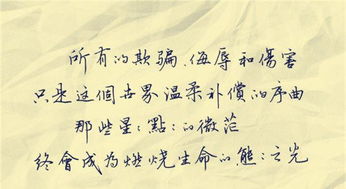 所有的欺骗、侮辱和傷害
只是这個世界温柔补償的序曲
那些星:點:的微茫
终會成为燃烧生命的熊:之光